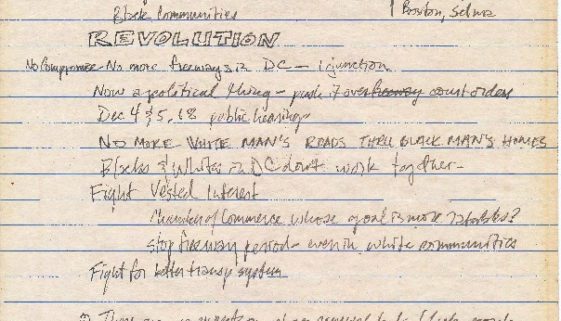 Black Communities
Boston, Selma
REVOLUTION
No Compromise - No more freeways in DC - injunction
Now a political thing - push it over freeway court orders
Dec 4 & 5, 68 public hearings
NO MORE WHITE MAN'S ROADS THRU BLACK MAN'S HOMES
Blacks & Whites in DC don't work together -
Fight Vested Interest
Chamber of Commerce whose goal is more
stop freeway period - even in white communities
Fight for better transp system